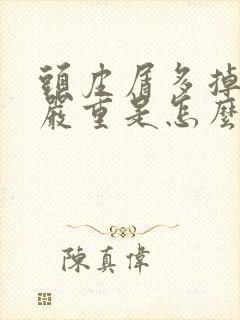 頭皮屑多掉
嚴重是怎麼
陳真偉